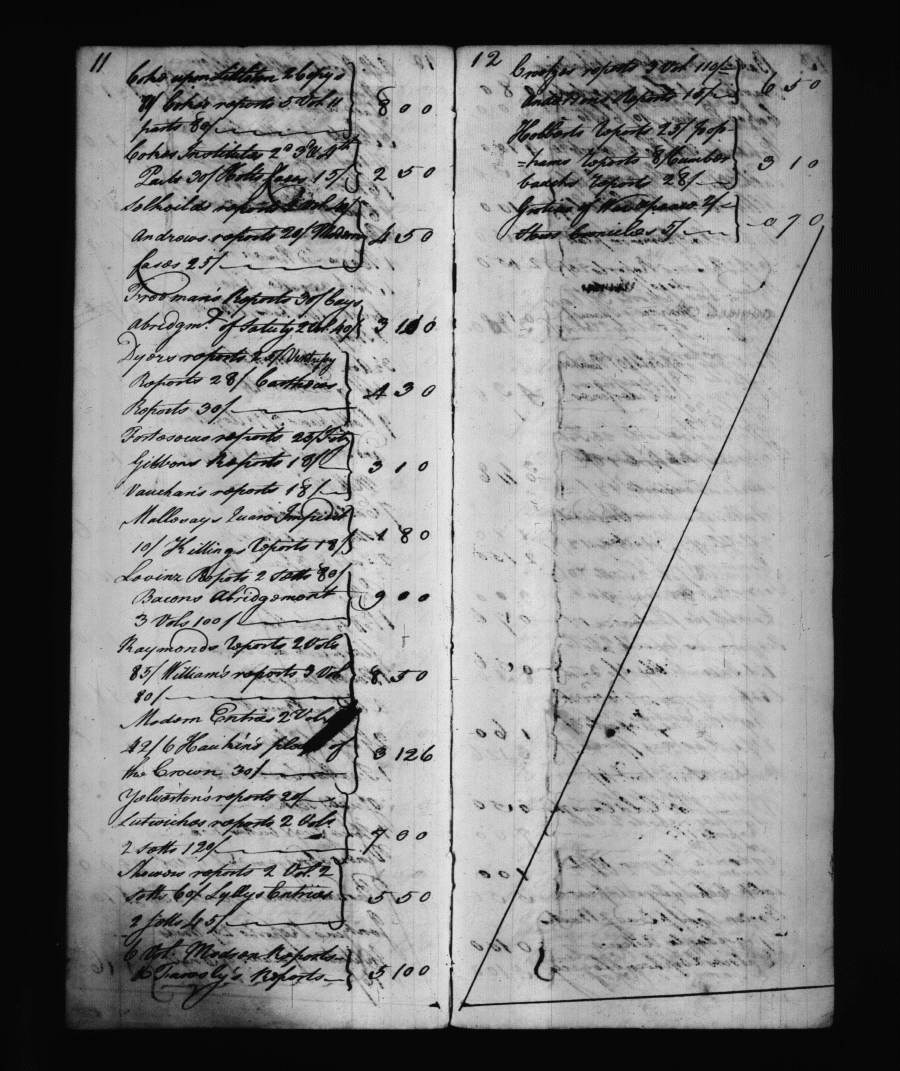 11
Coke upon Littleton 2 Copys
Cokes reports 5 Vol 11
parts 80/ 8 0 0
Cokes Institutes 2d 3d & 4th
Parts 30/ Cases 15/ 2 5 0
reports
Andrews reports 20/ Modern 4 5 0
Cases 25/
Freeman's Reports 30/ Cays
Abridgmt. of Statuty 2 Vol. 40/ 3 10 0
Dyers reports 25/ Ventrisy
Reports 28/ Carthews 4 3 0
Reports 30/
Fortescues reports 25/ Fitz
Gibbons Reports 18/ 3 1 0
Vaughan's reports 18/
Malloways Quare Impedit
10/ Killings Reports 18/ 1 8 0
Levinz Reports 2 setts 80/
Bacons Abridgement 9 0 0
3 Vols 100/
Raymonds reports 2 Vols
85/ William's reports 3 Vol 8 5 0
80/
Modern Entries 2 Vols
42/6 Hawkin's pleas of 3 12 6
the Crown 30/
Yelverton's reports 20/
Lutwiches reports 2 Vols
2 setts 120/ 7 0 0
Showers reports 2 Vol. 2
setts 60/ Lyllys Entries 5 5 0
2 setts 45/
6 Vol. Modern Reports
Reports 5 10 0
12
reports 3 Vol 110/
Andersons Reports 15/ 6 5 0
Hobberts Reports 25/ Pop
=hams Reports 8/ Cumber 3 1 0
baachs Reports 28/
Grotius of War & peace 2/ 0 7 0
5/